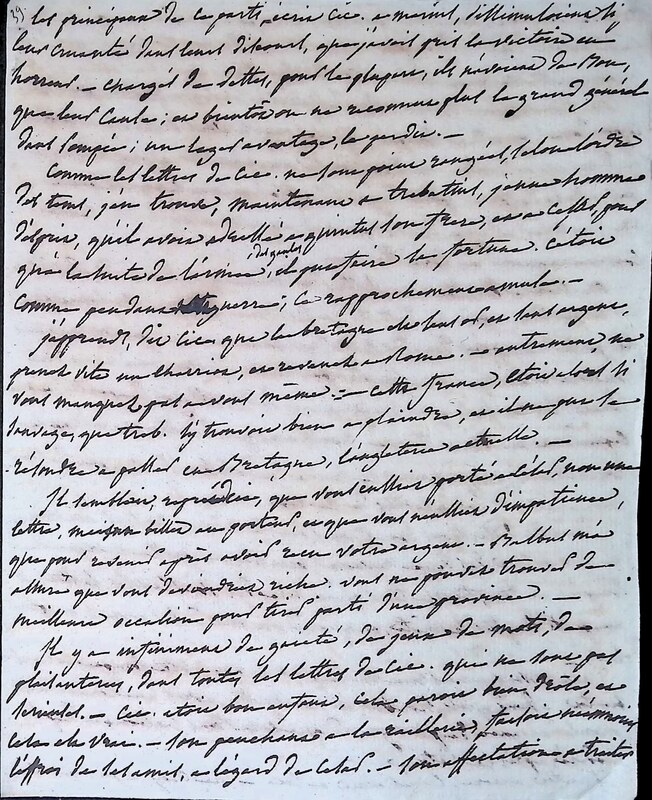 39 les principaux de ce parti, écrit Cic. a marius, dissimuloient si
leur cruauté dans leurs discours, que j'avois pris la victoire en
horreur. – chargés de dettes, pour la plupart, ils n'avoient de bon,
que leur cause; et bientôt on ne reconnut plus le grand général
dans Pompée; un leger avantage, le perdit. –
Comme les lettres de Cic. ne sont point rangées, selon l'ordre
des tems, j'en trouve, maintenant a trebatius, jeune homme
d'esprit, qu'il avoit adressé a quintus son frere, et a César, pour
qu'a la suite de l'armée, il put faire la fortune. C'étoit
des gaules
comme peu dans guerre; ce rapprochement amuse. –
j'apprends, dit Cic. que la bretagne est sans or, et sans argent,
prenez vite un charriot, et revenez a Rome. – autrement, ne
vous manquez pas a vous même. – cette france, étoit alors si
sauvage, que treb. s'y trouvoit bien a plaindre, et il ne put se
résoudre a passer en Bretagne, l'angleterre actuelle. –
Il sembloit, que vous eussiez porté a César, non une
lettre, mais un billet au porteur, et que vous n'eussiez d'impatience,
que pour revenir après avoir reçu votre argent. – Balbus m'a
assuré que vous deviendrez riche. vous ne pouvez trouver de
meilleure occasion pour tirer parti d'une province. –
Il y a infiniment de gaieté, de jeux de mots, de
plaisanteries, dans toutes les lettres de Cic. qui ne sont pas
serieuses. – Cic. etoit bon enfant, cela paroit bien drôle, et
cela est vrai. – son penchant a la raillerie, faisoit néanmoins
l'effroi de ses amis, a l'égard de César. – son affectation a traiter